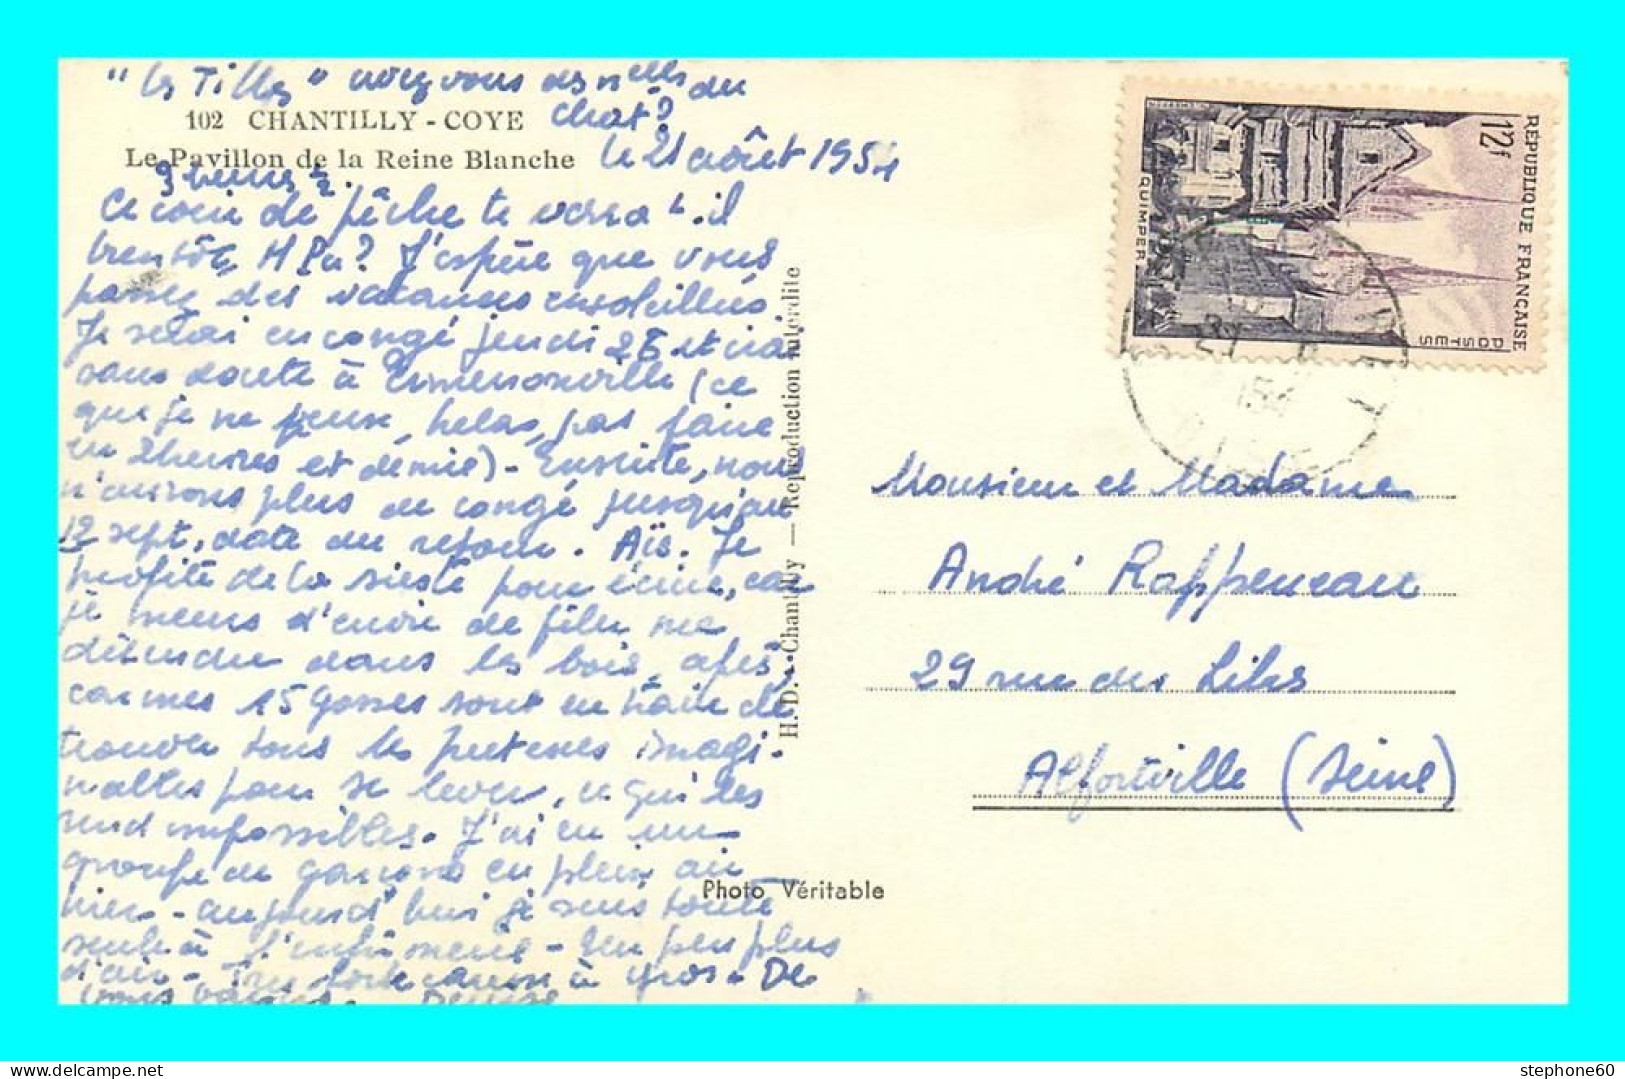 "les Tilles" avez vous des nelles du
chat?
102 CHANTILLY - COYE
Le Pavillon de la Reine Blanche
le 21 août 1954
9 heures ½.
Ce coin de pêche te verra t-il
bientôt, M Pa? J'espère que vous
passez des vacances ensoleillées
Je serai en congé jeudi 26 et irai
sans doute à Ermenonville (ce
que je ne peux, helas, pas faire
en 2 heures et demie) - Ensuite, nous
n'aurons plus de congé jusqu'au
12 sept, date du retour. Je
profite de la sieste pour écrire, car
je meurs d'envie de filer me
détendre dans les bois, après,
car mes 15 gosses sont en train de
trouver tous les pretextes imagi-
nables pour se lever, ce qui les
rend impossibles. J'ai eu un
groupe de garçons en plein air
hier - aujourd'hui je suis toute
seule à l'infirmerie - Un peu plus
d'air - gros. De
vous Denise
H. D. - Chantilly — Reproduction interdite
Photo Véritable
RÉPUBLIQUE FRANÇAISE
12f
POSTES
QUIMPER
Monsieur et Madame
André Rappeneau
29 rue des Lilas
Alfortville (Seine)
stephone60